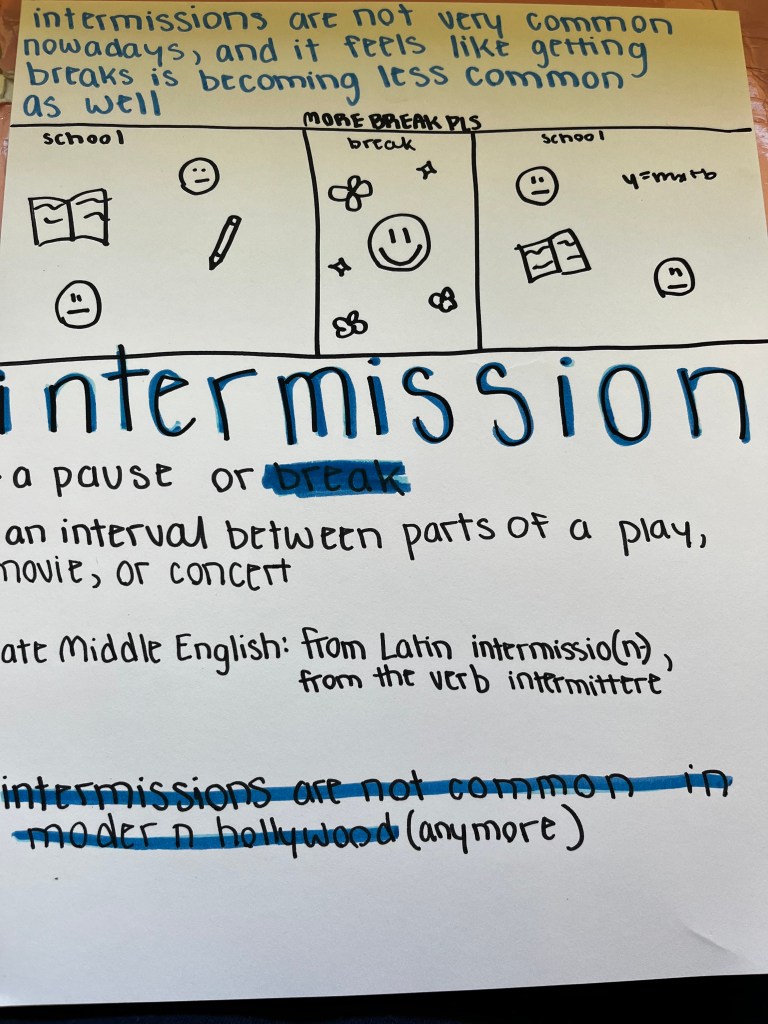 intermissions are not very common
nowadays, and it feels like getting
breaks is becoming less common
as well
MORE BREAK PLS
school
break
school
y=mx+b
intermission
- a pause or break
an interval between parts of a play,
movie, or concert
ate Middle English: from Latin intermissio(n-),
from the verb intermittere
intermissions are not common in
modern hollywood (anymore)